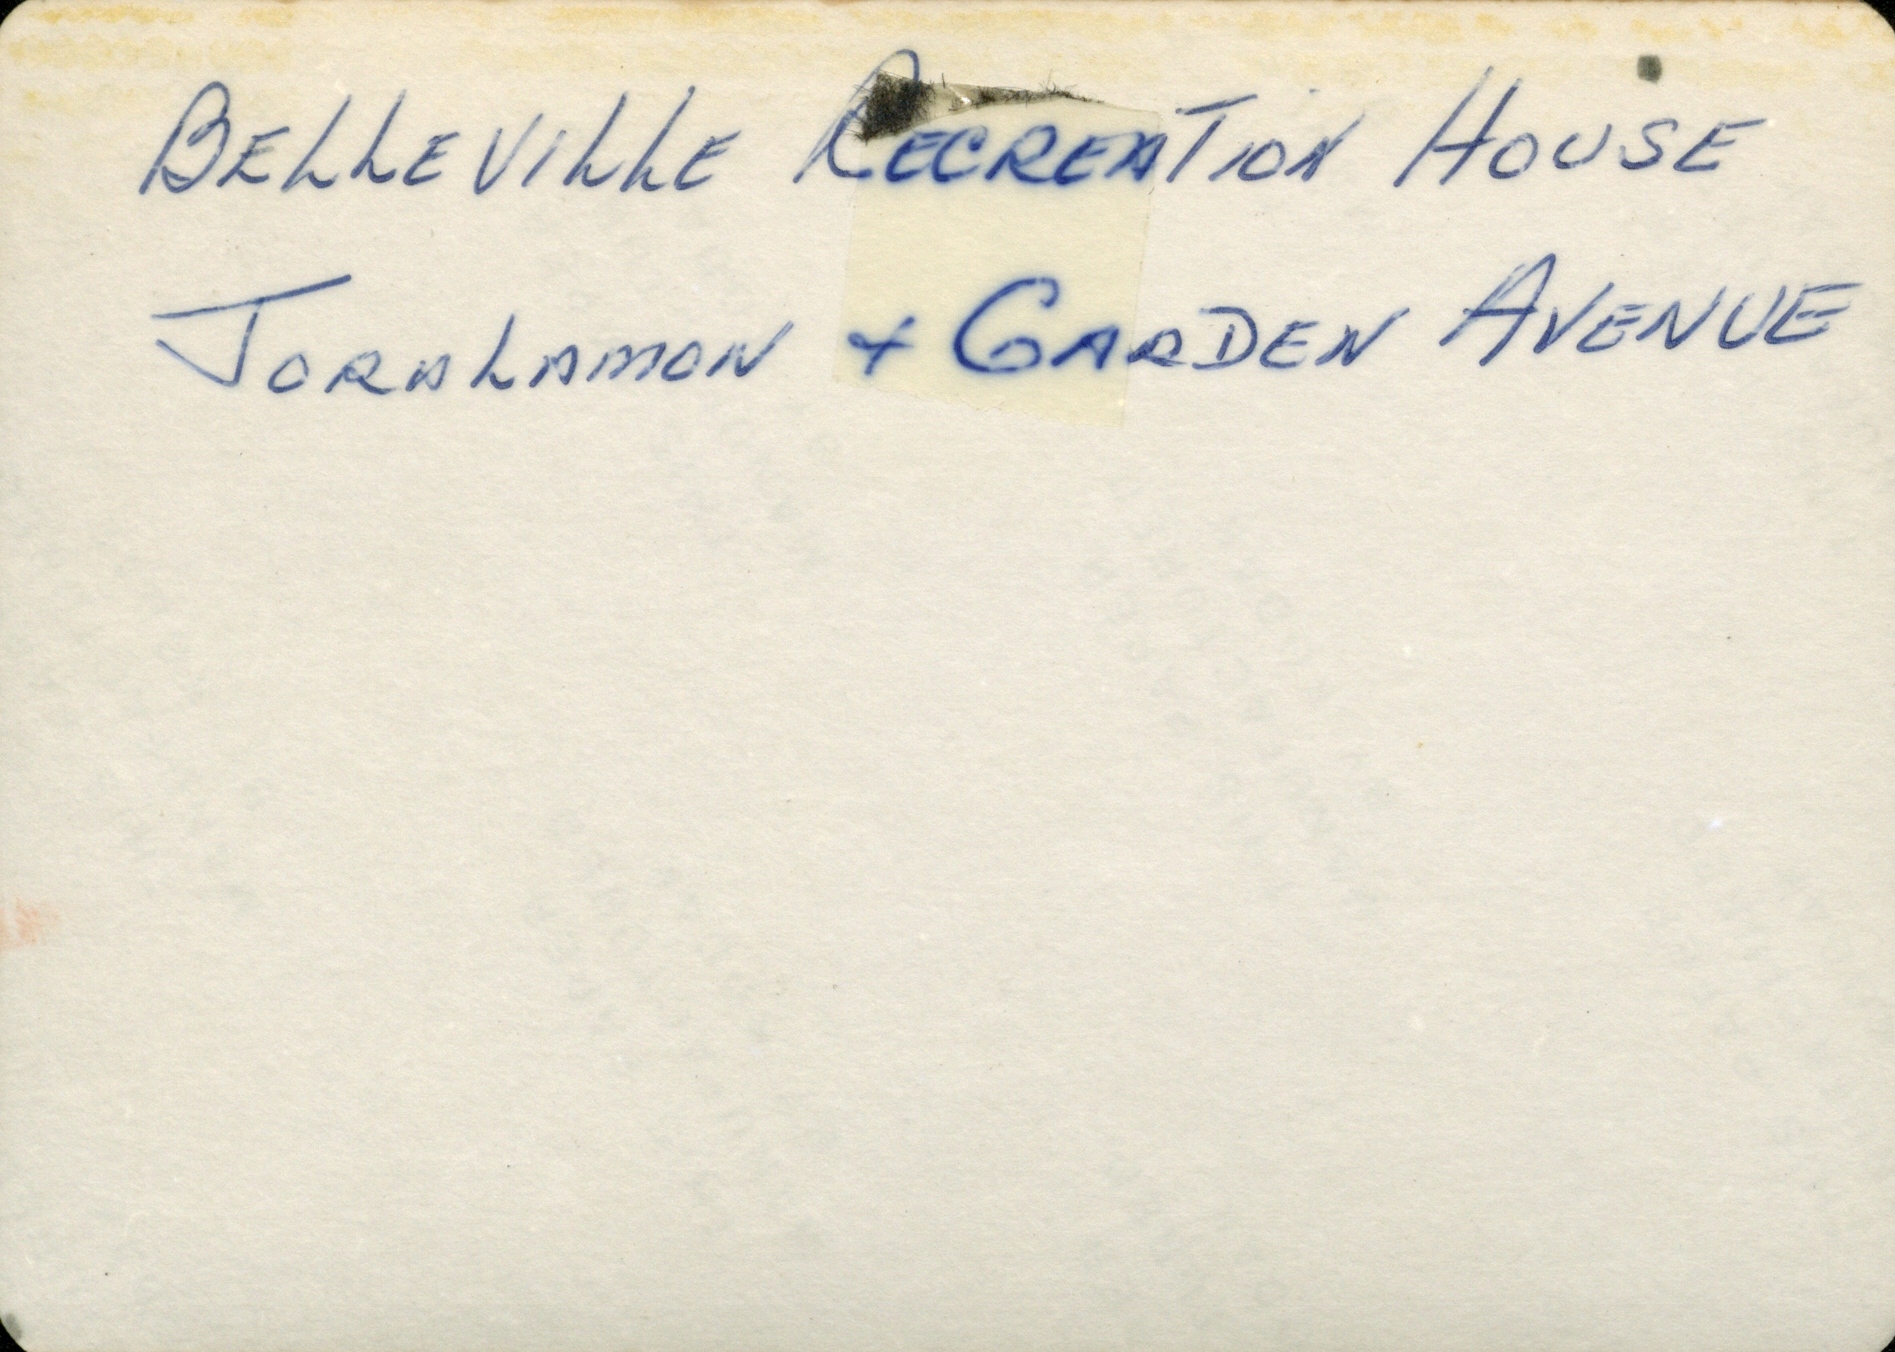 Belleville Recreation House
Joralamon + Garden Avenue